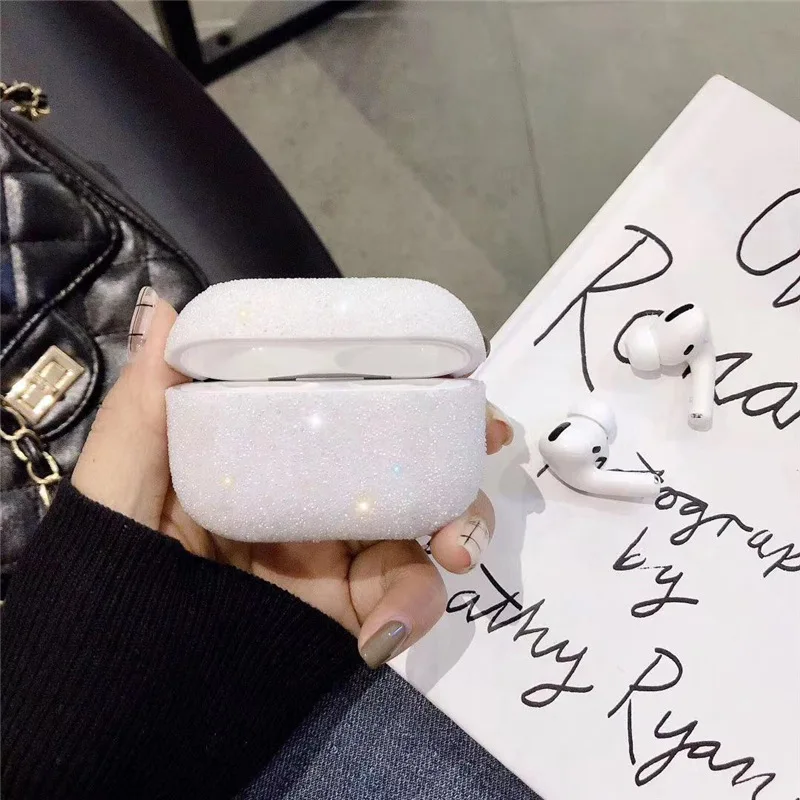 Roma
tograp
by
athy Ryan